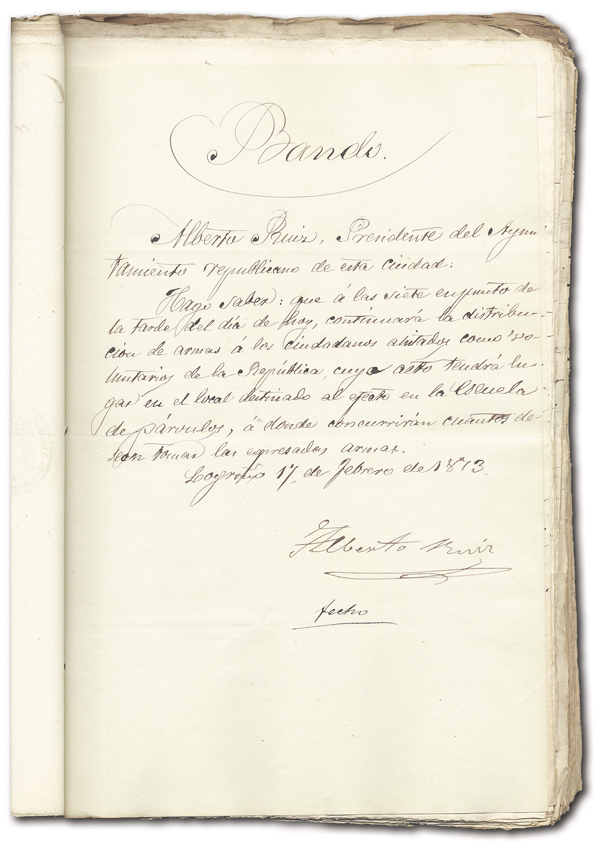 Bando.
Alberto Ruiz, Presidente del Ayun
tamiento republicano de esta ciudad:
Hago saber: que á las siete en punto de
la tarde del día de hoy, continuará la distribu-
cion de armas á los ciudadanos alistados como vo-
luntarios de la República, cuyo acto tendrá lu-
gar en el local destinado al efecto en la Escuela
de párvulos, á donde concurrirán cuantos de-
seen tomar las expresadas armas.
Logroño 17 de Febrero de 1873.
Alberto Ruiz
fecho